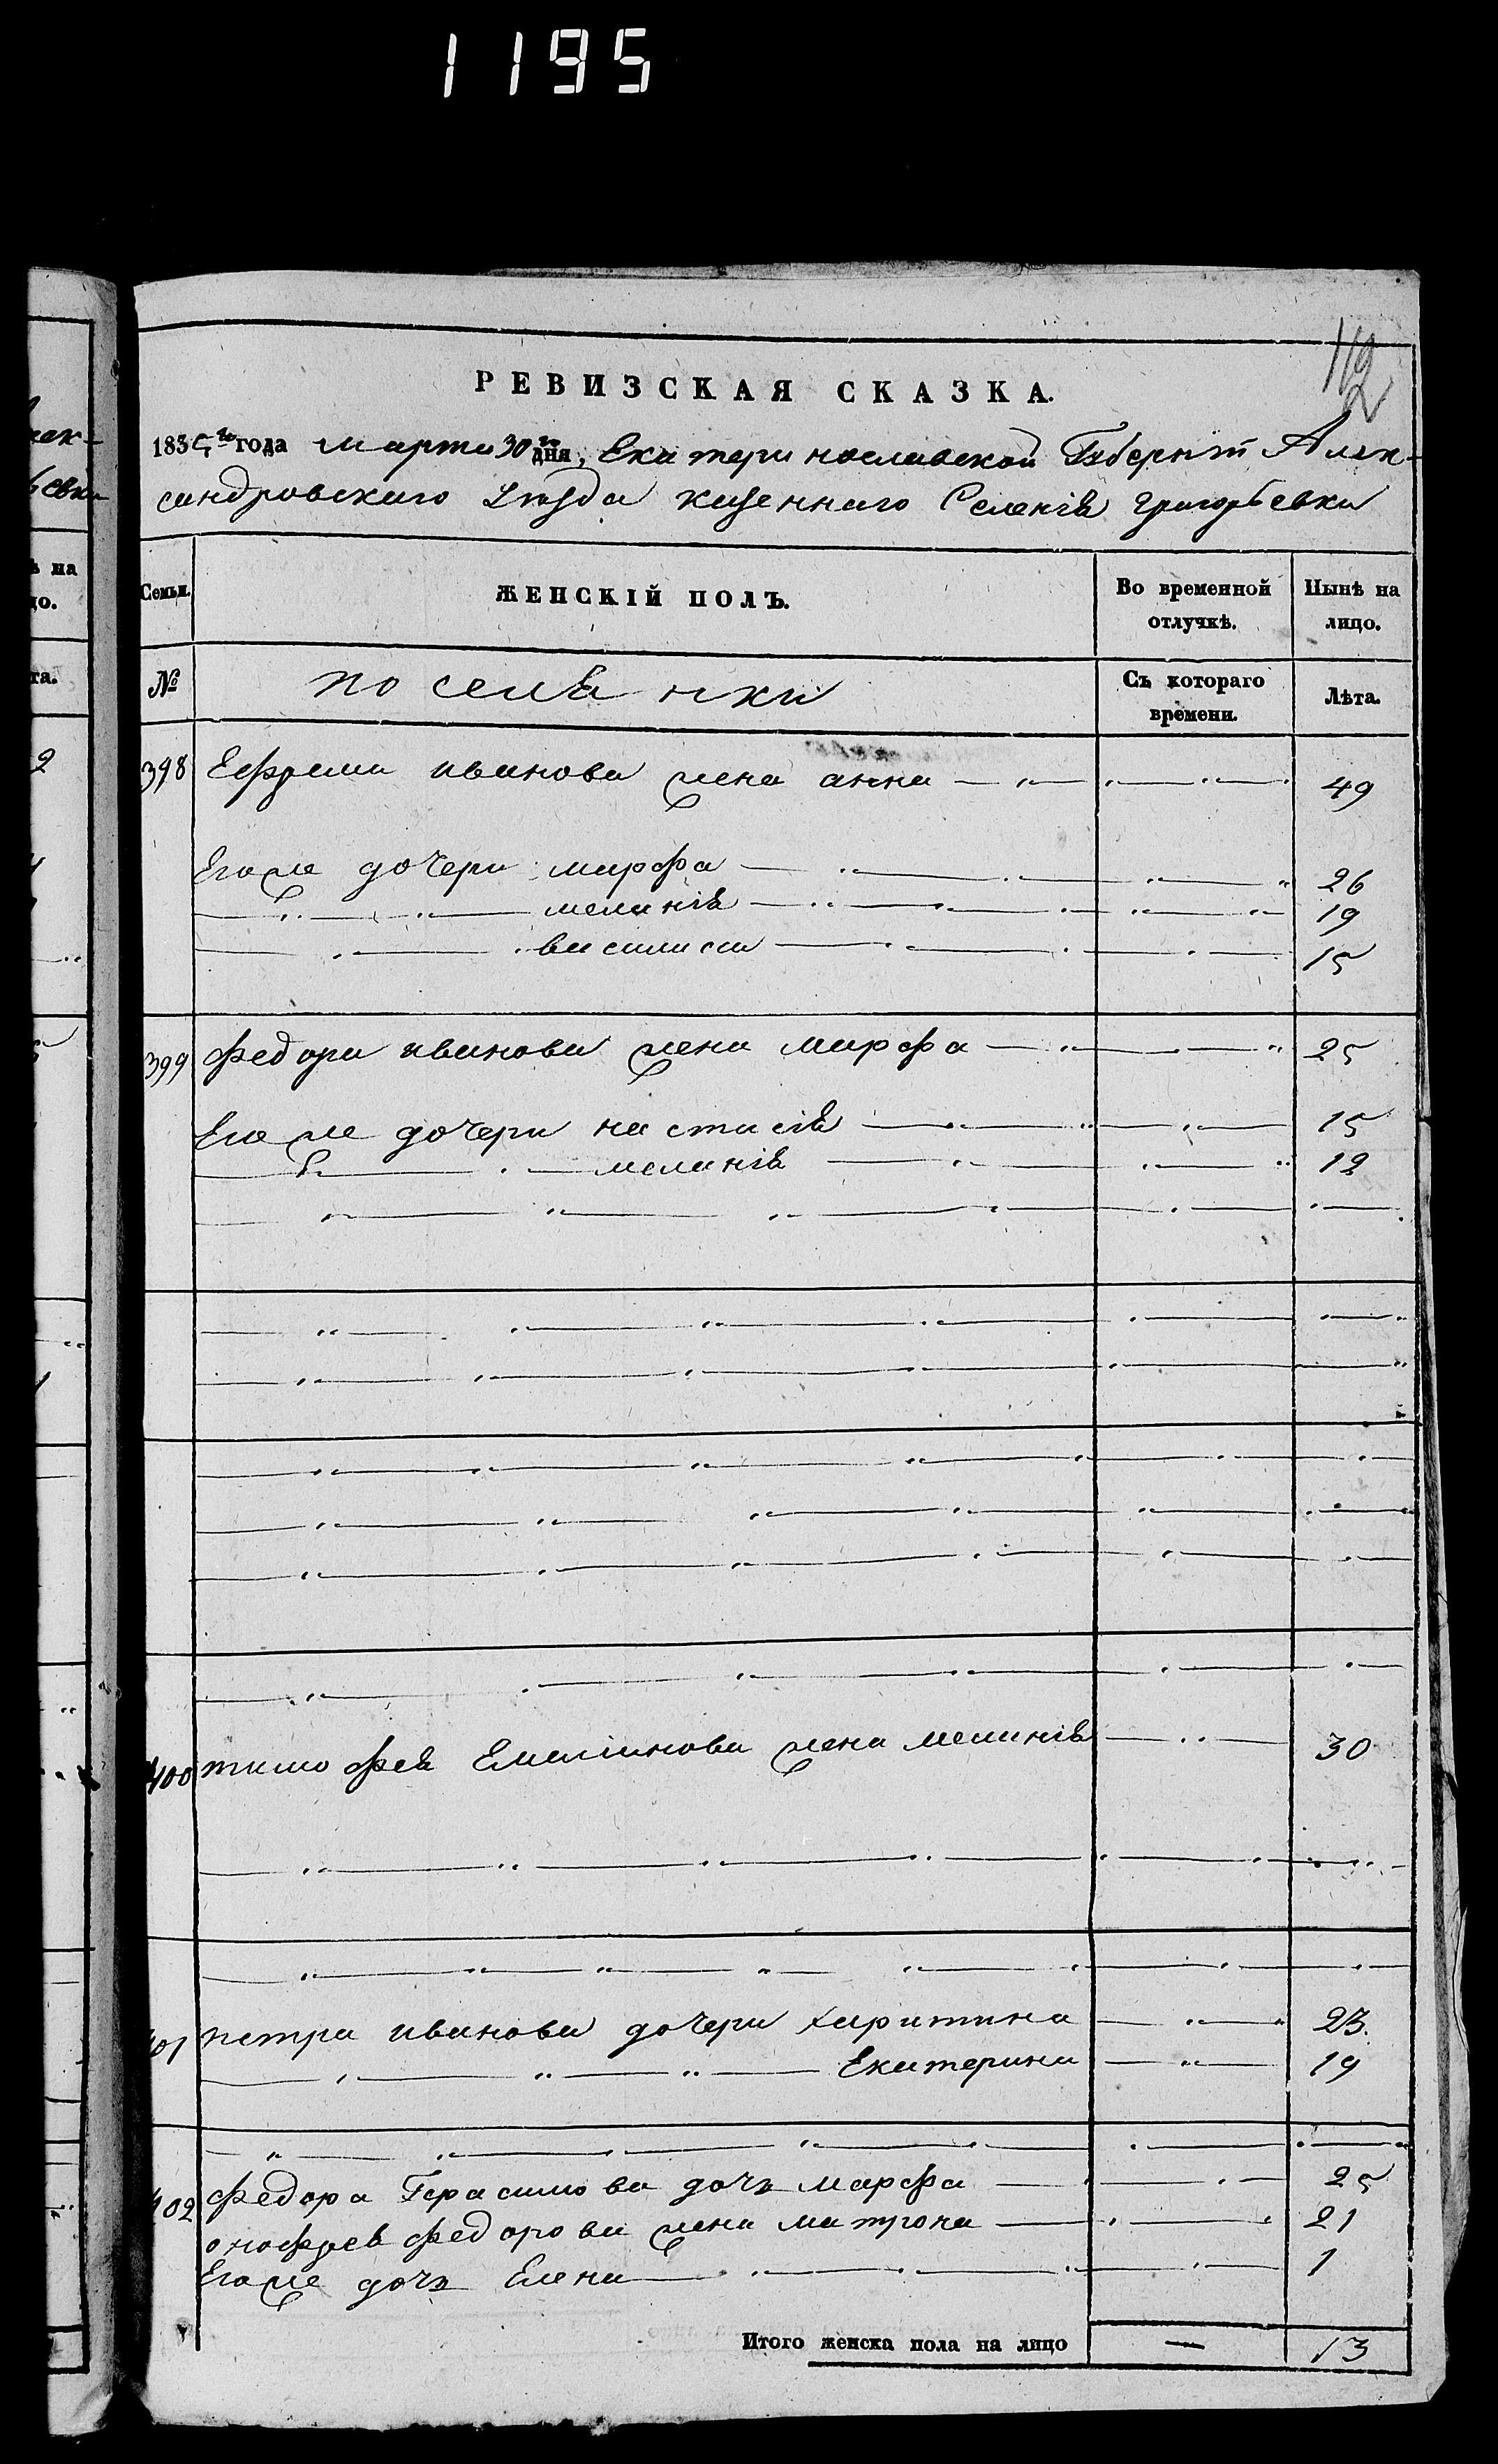 1195
112
РЕВИЗСКАЯ СКАЗКА.
1835го года Марта 30го дня, Екатеринославской Губерніи Алек-
сандровскаго Уѣзда казеннаго Селенія Григорьевки
Семьи. ЖЕНСКІЙ ПОЛЪ. Во временной отлучкѣ. Нынѣ на лицо.
№ поселянки Съ котораго времени. Лѣта.
398 Ефрема иванова жена анна 49
Егоже дочери марфа 26
меланія 19
василиса 15
399 Федора иванова жена марфа 25
Егоже дочери настасія 15
меланія 12
400 тимофея Емелianова жена меланія 30
401 петра иванова дочери харитина 23.
Екатерина 19
402 Федора Герасимова дочь марфа 25
онофрея Федорова жена матрона 21
Егоже дочь Елена 1
Итого женска пола на лицо — 13